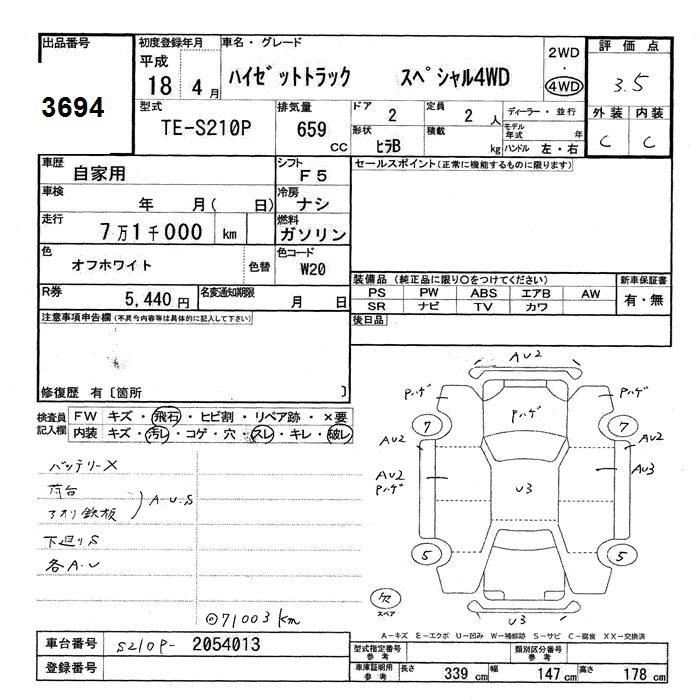 出品番号
3694
初度登録年月
平成
18 4 月
車名・グレード
ハイゼットトラック スペシャル4WD
2WD
・
4WD
評価点
3.5
外装 内装
C C
型式
TE-S210P
排気量
659 CC
ドア
2
定員
2 人
形状
ヒラB
積載
kg
ディーラー・並行
モデル年式 年
ハンドル 左・右
車歴
自家用
シフト
F5
車検
年 月( 日)
冷房
ナシ
走行
7万1千000 km
燃料
ガソリン
色
オフホワイト
色替
色コード
W20
R券
5,440 円
名変通知期限
月 日
セールスポイント(正常に機能するものに限ります)
装備品(純正品に限り○をつけてください)
PS PW ABS エアB AW
SR ナビ TV カワ
新車保証書
有・無
後日品
注意事項申告欄(不具合内容等は具体的に記入して下さい)
修復歴 有〔箇所 〕
検査員記入欄
FW キズ・飛石・ヒビ割・リペア跡・×要
内装 キズ・汚レ・コゲ・穴・スレ・キレ・破レ
バッテリーX
荷台
アオリ鉄板
A.U.S
下廻りS
各A.U
◎71003km
AU2
Pハゲ
Pハゲ
Pハゲ
7
7
AU2
AU2
AU2
Pハゲ
AU3
U3
5
5
欠
スペア
U3
A-キズ E-エクボ U-凹み W-補修跡 S-サビ C-腐食 XX-交換済
車台番号
S210P- 2054013
登録番号
型式指定番号
参考
類別区分番号
参考
車庫証明用
参考
長さ 339 cm
幅 147 cm
高さ 178 cm